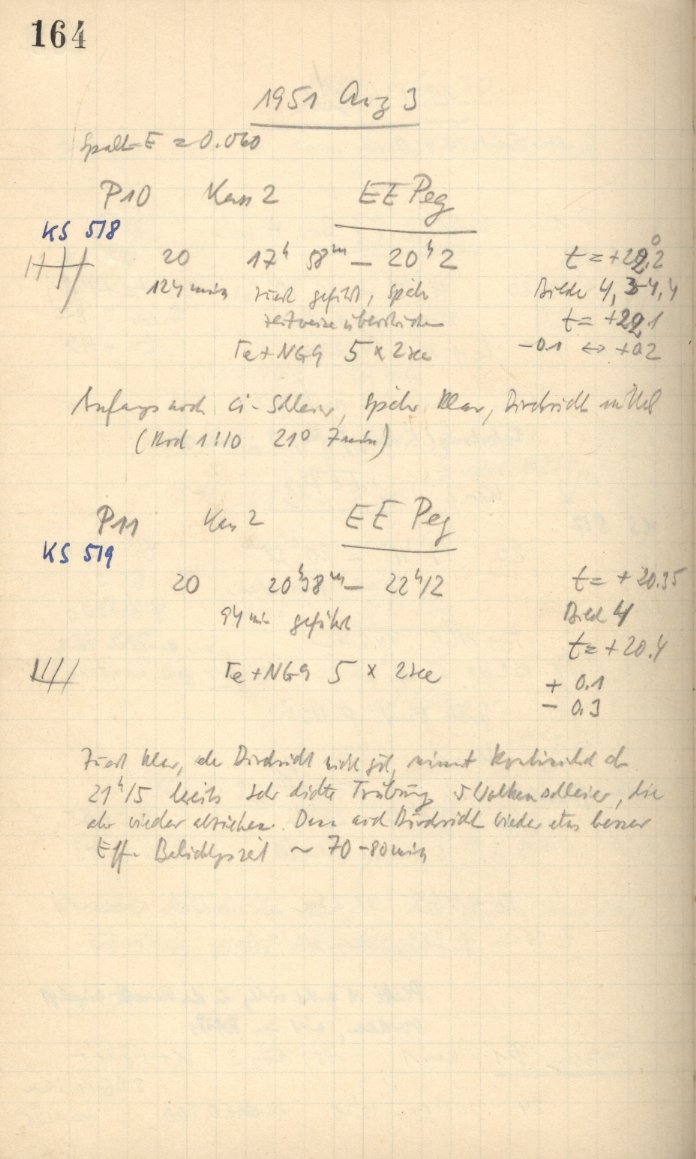 164
1951 Aug 3
Spalt-E = 0.060
P10 Kass 2 EE Peg
KS 518
20 17h 58m – 20h 2 t = +20.2
124 min zuerst geführt, später Bilder 4, 3-4, 4
zeitweise überstrichen t = +20.1
Te+NG9 5 x 2sec -0.1 ↔ +0.2
Anfangs noch Ci-Schleier, später klar, Durchsicht mittel
(Hord 1:10 21° 7min)
P11 Kass 2 EE Peg
KS 519
20 20h38m – 22h12 t = +20.35
94 min geführt Bild 4
t = +20.4
Te+NG9 5 x 2sec + 0.1
- 0.3
Zuerst klar, aber Durchsicht nicht gut, nimmt kontinuierlich ab
21h15 bereits sehr dichte Trübung Wolkenschleier, die
aber wieder abziehen. Dann wird Durchsicht wieder etwas besser
Eff. Belichtgszeit ~ 70-80min